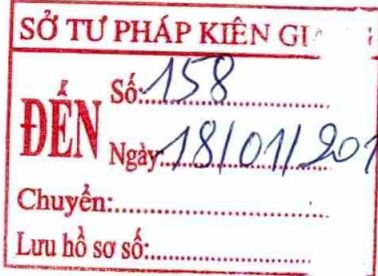 SỞ TƯ PHÁP KIÊN GI
ĐẾN
Số: 158
Ngày: 18/01/201
Chuyển:
Lưu hồ sơ số: